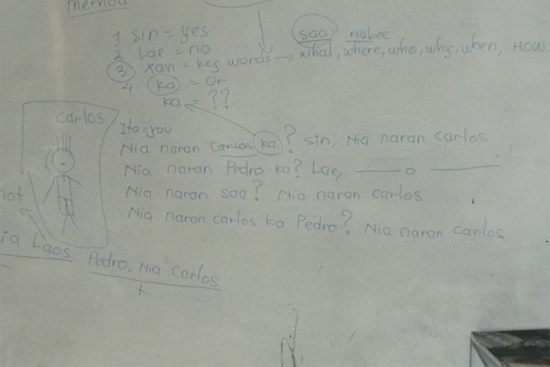 method
1 sin = yes
2 Lae = no
3 Xavi = key words → what, where, who, why, when, How
saa? nabee
4 ka = or
ka = ??
Carlos
Ita = you
Nia naran Carlos ka? sin, Nia naran Carlos
Nia naran Pedro ka? Lae, ——— o ———
Nia naran saa? Nia naran carlos
Nia naran carlos ka Pedro? Nia naran carlos
not
ia Laos Pedro. Nia Carlos